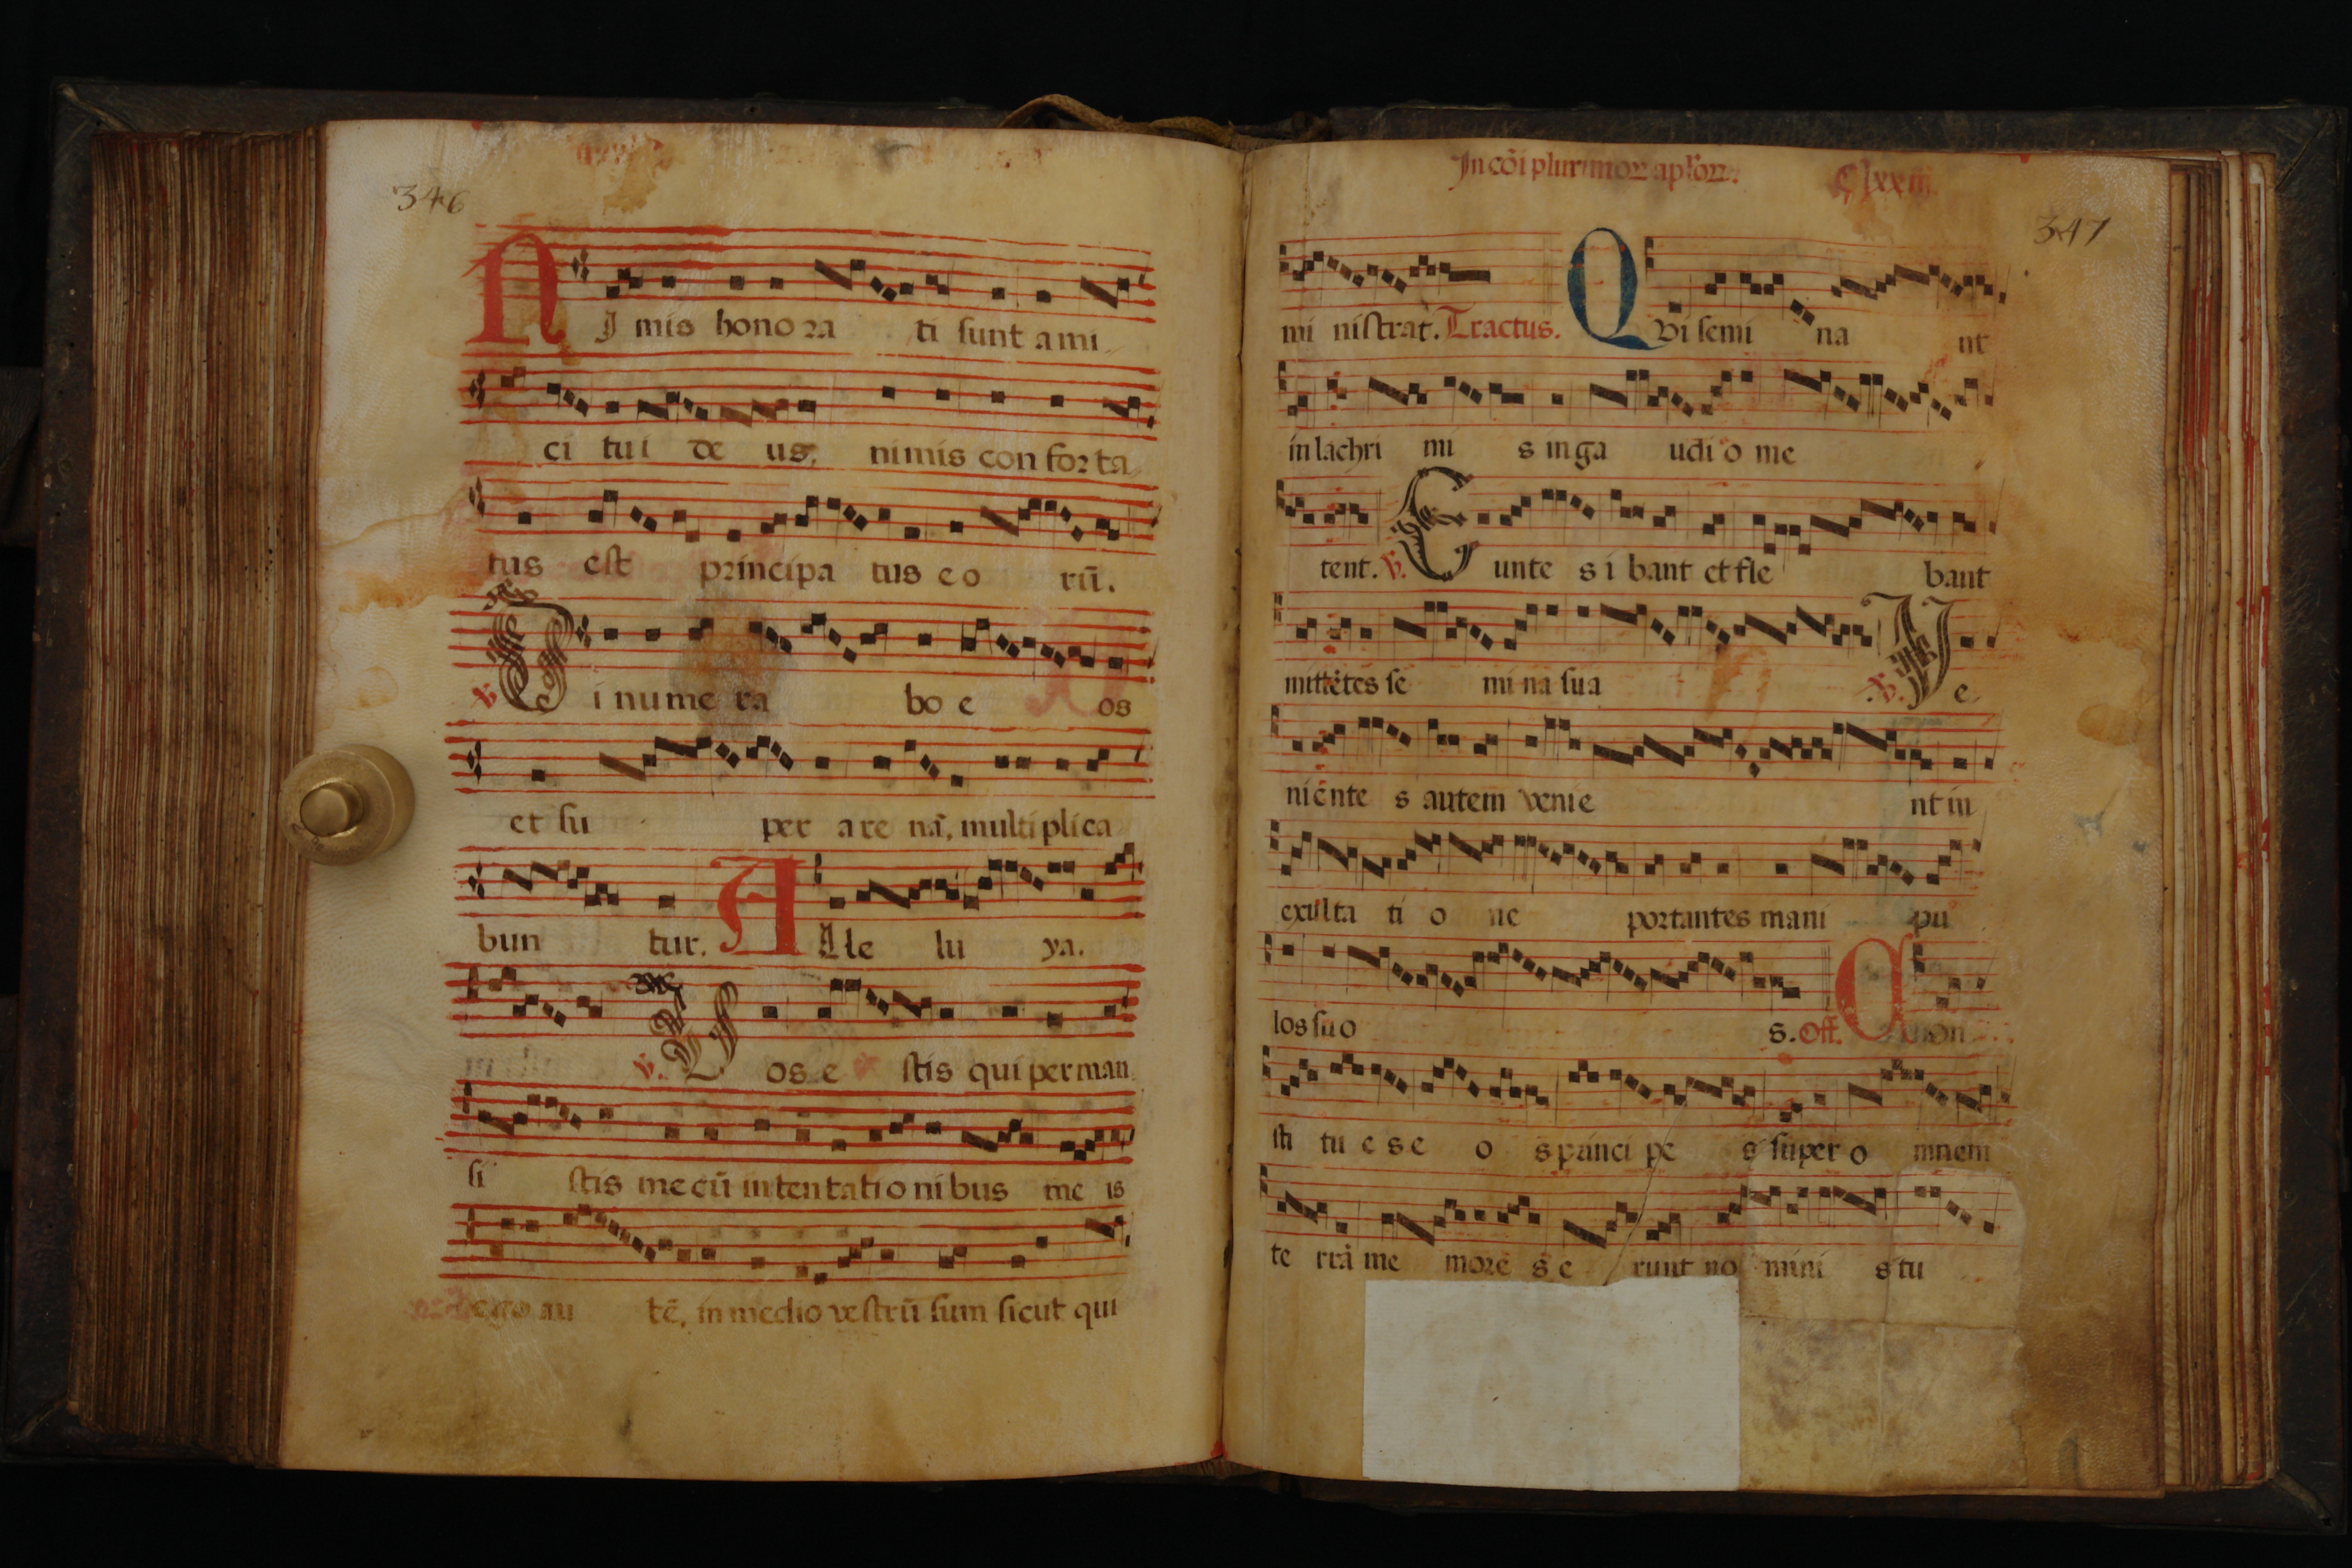 346
NJ mis hono ra ti sunt a mi
ci tui de us, nimis con for ta
tus est principa tus e o rū.
℣. Di nume ra bo e os
et su per are nā, multiplica
bun tur. A Ale lu ya.
℣. Vos e stis qui perman
si stis mecū in tentationibus me is
ego au tē, in medio vestrū sum sicut qui
In cōi plurimoꝝ aplōꝝ.
347
mi nistrat. Tractus. Qvi semi na nt
in lachri mi s in ga udi o me
tent. ℣. Eunte s i bant et fle bant
mittētes se mi na sua ℣. Ve
niēnte s autem venie nt in
exulta ti o ne portantes mani pu
los suo s. Off. Con
sti tu e s e o s princi pe s super o mnem
te rrā me more s e runt no mini s tu